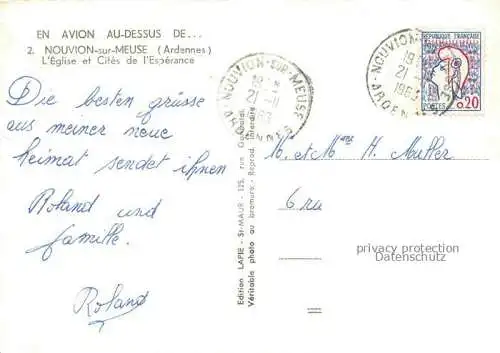 EN AVION AU-DESSUS DE...
2. NOUVION-sur-MEUSE (Ardennes)
L'Église et Cités de l'Espérance
Die besten grüsse
aus meiner neue
heimat sendet ihnen
Roland und
famille.
Roland
Edition LAPIE - St-MAUR - 125, rue
Véritable photo au bromure - Reprod. interdite
NOUVION-SUR-MEUSE
21-11
1963
ARDENNES
NOUVION
21
1963
ARDEN
REPUBLIQUE FRANÇAISE
POSTES 0,20
M. et Mme H. Muller
6 ru
privacy protection
Datenschutz